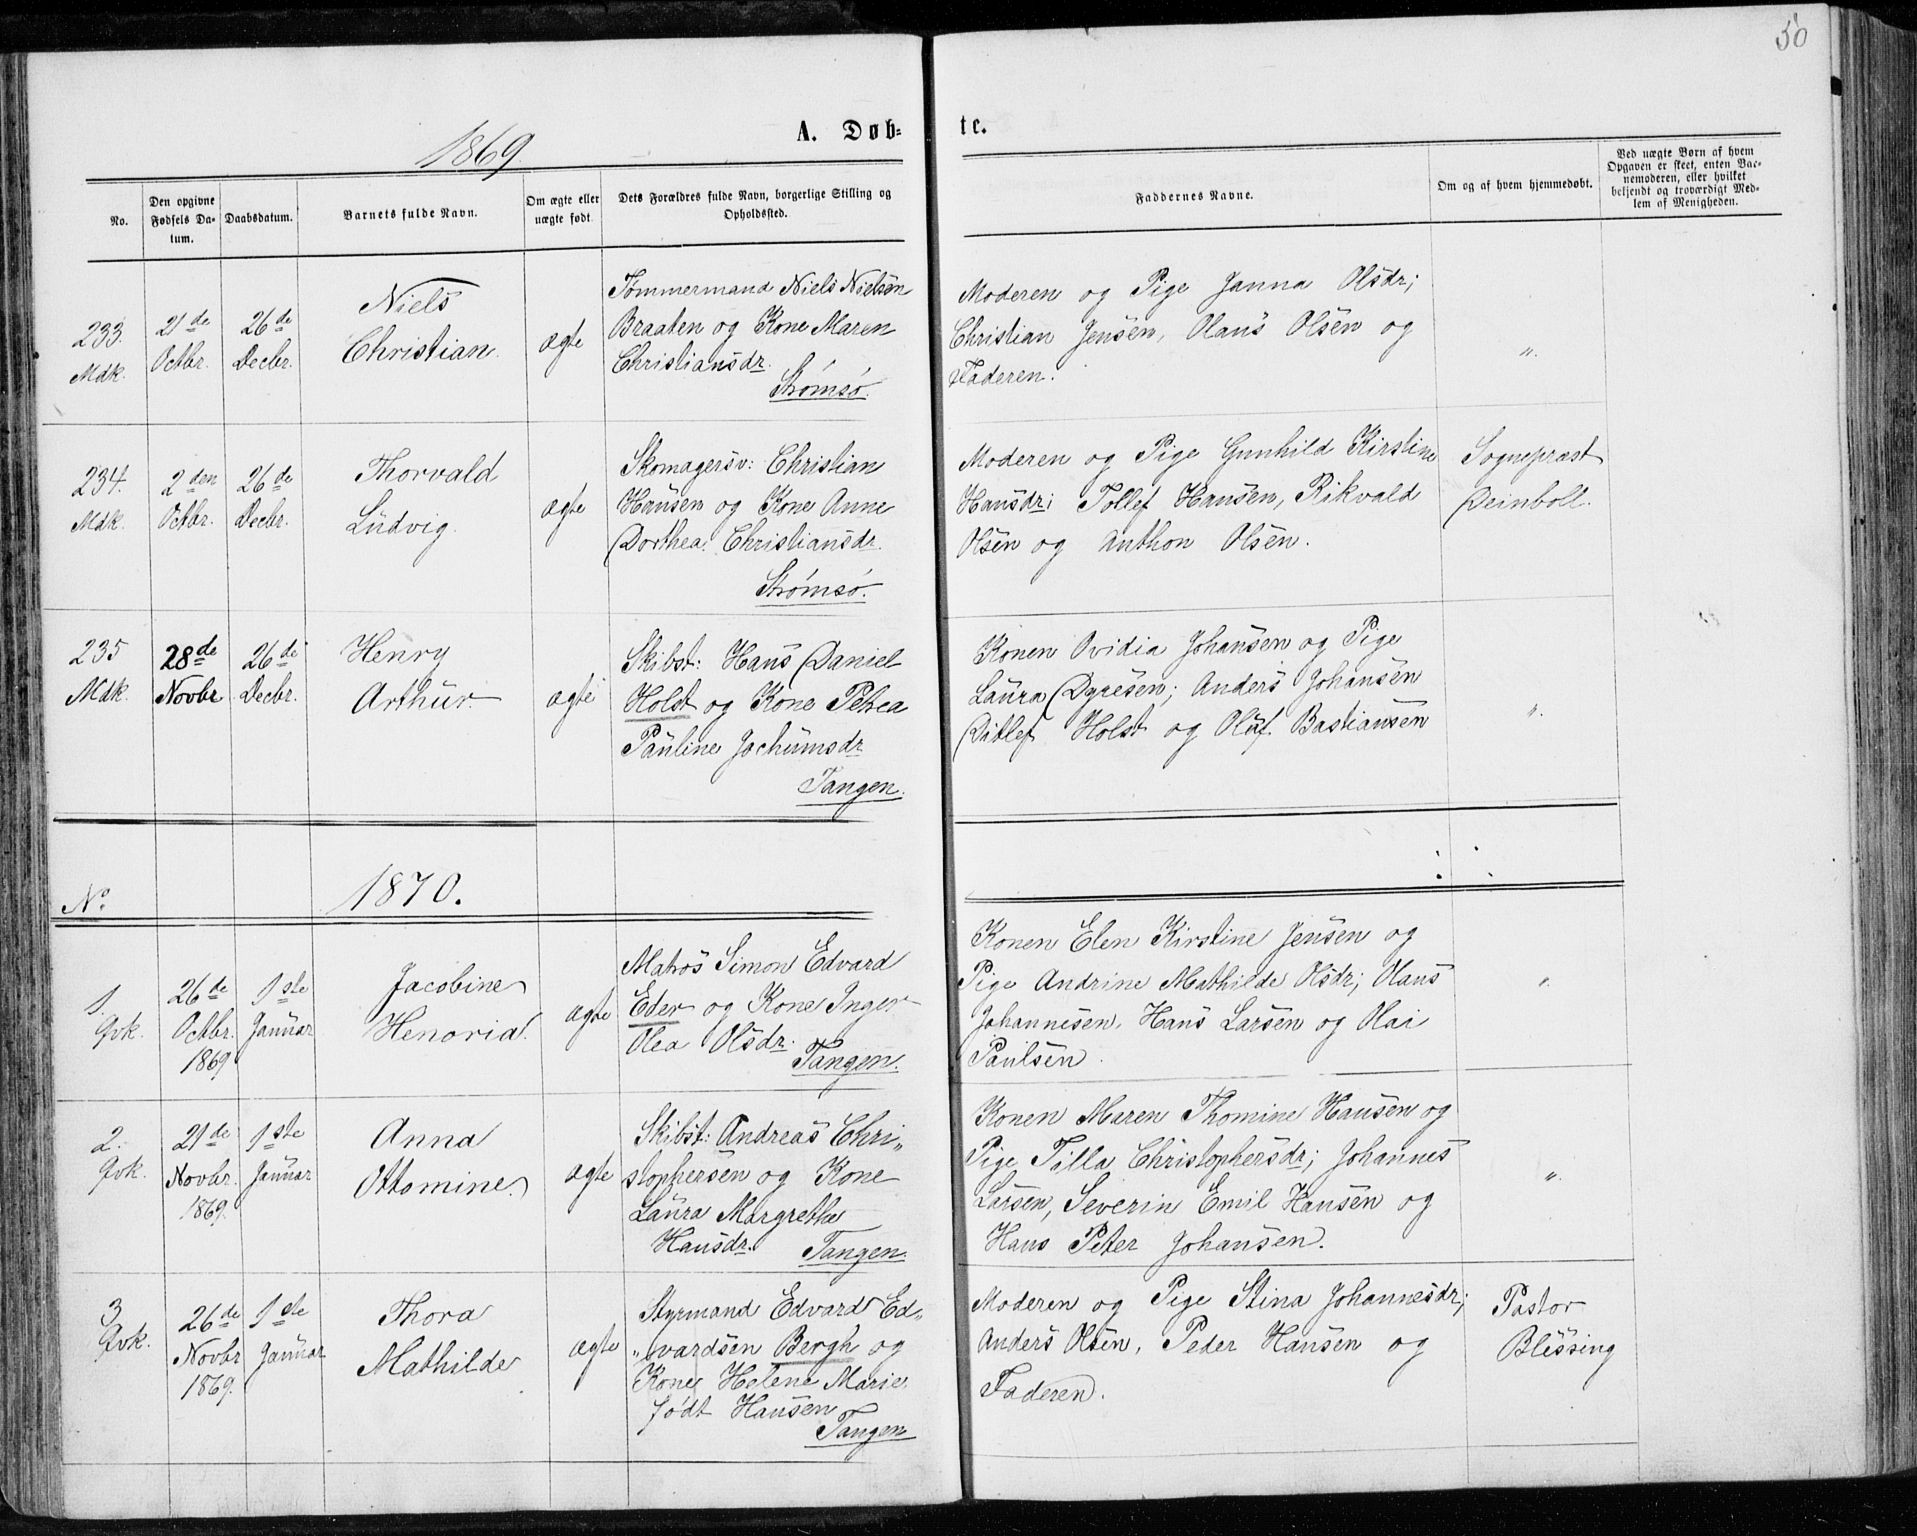 50
1869.
A. Døb-
te.
No.
Den opgivne
Fødsels Da-
tum.
Daabsdatum.
Barnets fulde Navn.
Om ægte eller
uægte født
Dets Forældres fulde Navn, borgerlige Stilling og
Opholdssted.
Faddernes Navne.
Om og af hvem hjemmedøbt.
Ved uægte Børn af hvem
Opgaven er skeet, enten Bar-
nemoderen, eller hvilket
bekjendt og troværdigt Med-
lem af Menigheden.
233.
Mdk.
21de
Octbr.
26de
Decbr.
Niels
Christian.
ægte
Tømmermand Niels Nielsen
Braaten og Kone Maren
Christiansdr.
Strømsø.
Moderen og Pige Janna Olsdr;
Christian Jensen, Olaus Olsen og
Faderen.
"
234.
Mdk.
2den
Octbr.
26de
Decbr.
Thorvald
Ludvig.
ægte
Skomagersv: Christian
Hansen og Kone Anne
Dorthea Christiansdr.
Strømsø.
Moderen og Pige Gunhild Kirstine
Hansdr; Tollef Hansen, Rikvald
Olsen og Anthon Olsen.
Sogneprest
Deinboll.
235
Mdk.
28de
Novbr
26de
Decbr.
Henry
Arthur.
ægte
Skibst: Hans Daniel
Holst og Kone Petrea
Pauline Jochumsdr
Tangen.
Konen Ovidia Johansen og Pige
Laura Dyresen; Anders Johansen
Ditlef Holst og Olaf Bastiansen
"
No.
1870.
1.
Qvk.
26de
Octbr.
1869
1ste
Januar
Jacobine
Henoria.
ægte
Matros Simon Edvard
Eder og Kone Inger
Olea Olsdr.
Tangen.
Konen Elen Kirstine Jensen og
Pige Andrine Mathilde Olsdr; Olaus
Johannesen, Hans Larsen og Olai
Paulsen.
"
2.
Qvk.
21de
Novbr.
1869.
1ste
Januar
Anna
Ottomine.
ægte
Skibst: Andreas Chri„
stophersen og Kone
Laura Margrethe
Hansdr. Tangen.
Konen Maren Thomine Hansen og
Pige Tilla Christophersdr; Johannes
Larsen, Severin Emil Hansen og
Hans Peter Johansen.
"
3
Qvk.
26de
Novbr
1869.
1ste
Januar
Thora
Mathilde
ægte
Styrmand Edvard Ed„
„vardsen Bergh og
Kone Helene Marie
født Hansen
Tangen
Moderen og Pige Stina Johannesdr;
Anders Olsen, Peder Hansen og
Faderen.
Pastor
Blessing